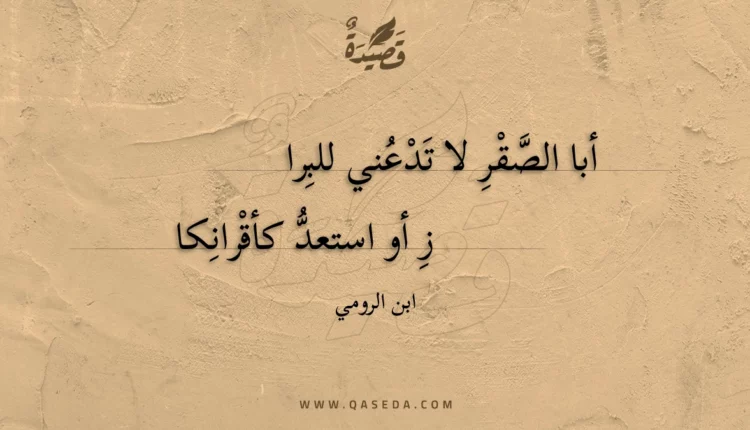 قَصِيْدَةٌ
أبا الصَّقْرِ لا تَدْعُني للبِرا
زِ أو استعدُّ كأقْرانِكا
ابن الرومي
WWW.QASEDA.COM